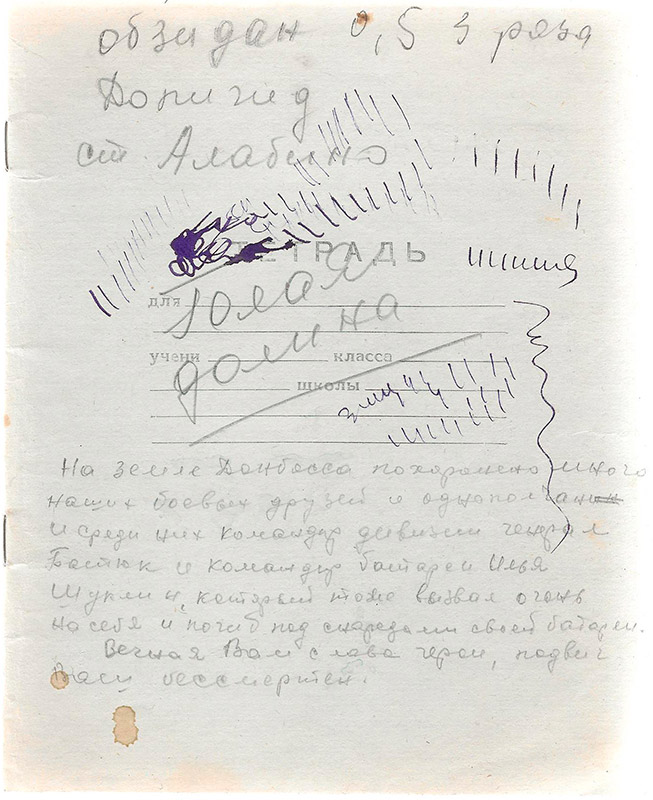 обзидан 0,5 3 раза
Допигид
ст. Алабино
ТЕТРАДЬ
для
Голая
долина
учени класса
школы
На земле Донбасса похоронено много
наших боевых друзей и однополчан
и среди них командир дивизии генерал
Батюк и командир батареи Илья
Шуклин, который тоже вызвал огонь
на себя и погиб под снарядами своей батареи.
Вечная Вам слава герои, подвиг
Ваш бессмертен.